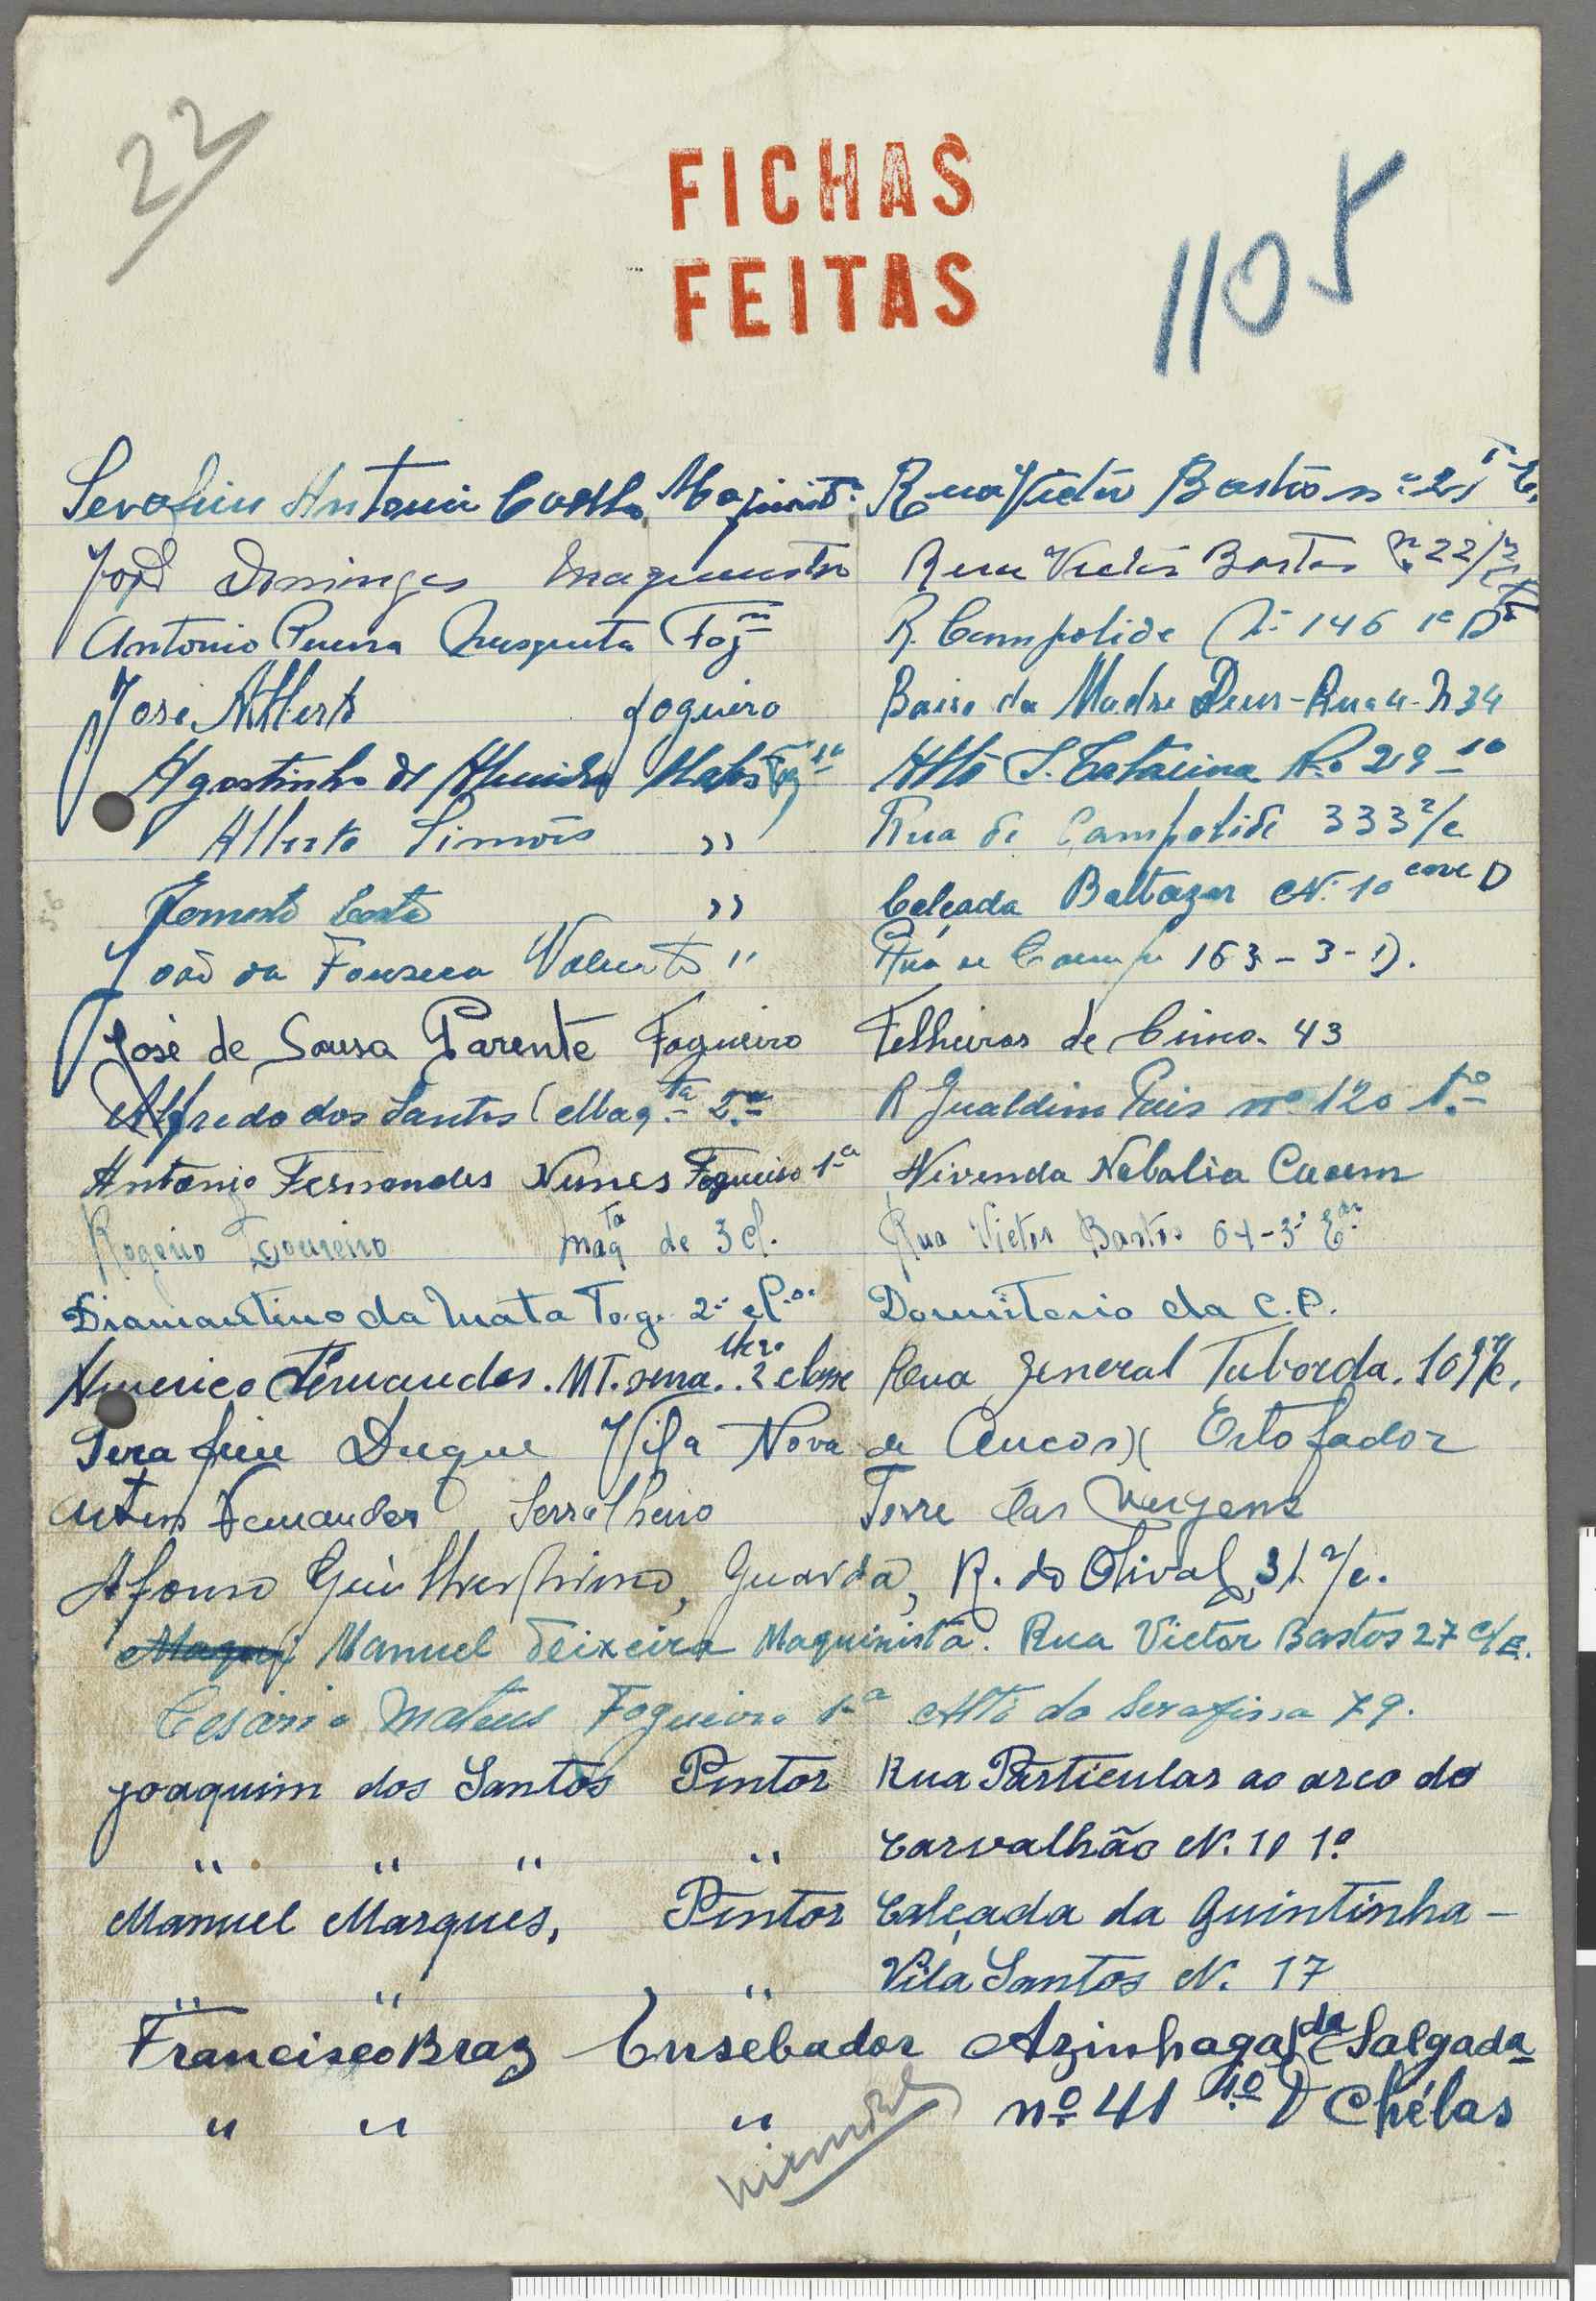 22
FICHAS
FEITAS
1105
Serafim Antonio Coelho Maquinista Rua Victor Bastos nº 21 1º E.
José Domingos maquinista Rua Victor Bastos nº 22
Antonio Pereira Fogro R. Campolide Nº 146 1º Dto
José Alberto fogueiro Bairo da Madre Deus - Rua 4 - N 34
Agostinho de Almeida Matos Fogº 1ª Alto S. Catarina Nº 29 1º
Alberto Simões " Rua de Campolide 333 r/c
Costa " Calçada Baltazar Nº 10 cave D
João da Fonseca " Rua de 163 - 3 - D.
José de Sousa Parente Fogueiro Telheiras de Cima. 43
Alfredo dos Santos Maqta 2ª R Gualdim Pais nº 120 1º
Antonio Fernandes Nunes Fogueiro 1ª Vivenda Nabalia Cacem
Rogerio Loureiro maqta de 3 cl. Rua Victor Bastos 64 - 3º Eº
Diamantino da Mata Fog. 2ª cl. Dormitorio da C.P.
Americo Fernandes. 2 classe Rua General Taborda. 109 r/c.
Serafim Duque Vila Nova de Ancos) Estofador
Fernandes Serralheiro Torre das Vargens
Afonso Guilhermino, Guarda, R. do Olival, 31 r/c.
Manuel Teixeira Maquinista. Rua Victor Bastos 27 c/E.
Cesário Mateus Fogueiro 1ª Alto do Serafina 79.
Joaquim dos Santos Pintor Rua Particular ao arco do
" " " " Carvalhão N. 11 1º
Manuel Marques, Pintor Calçada da Quintinha -
" " " Vila Santos N. 17
Francisco Braz Ensebador Azinhaga da Salgada
" " " nº 41 1º D Chélas